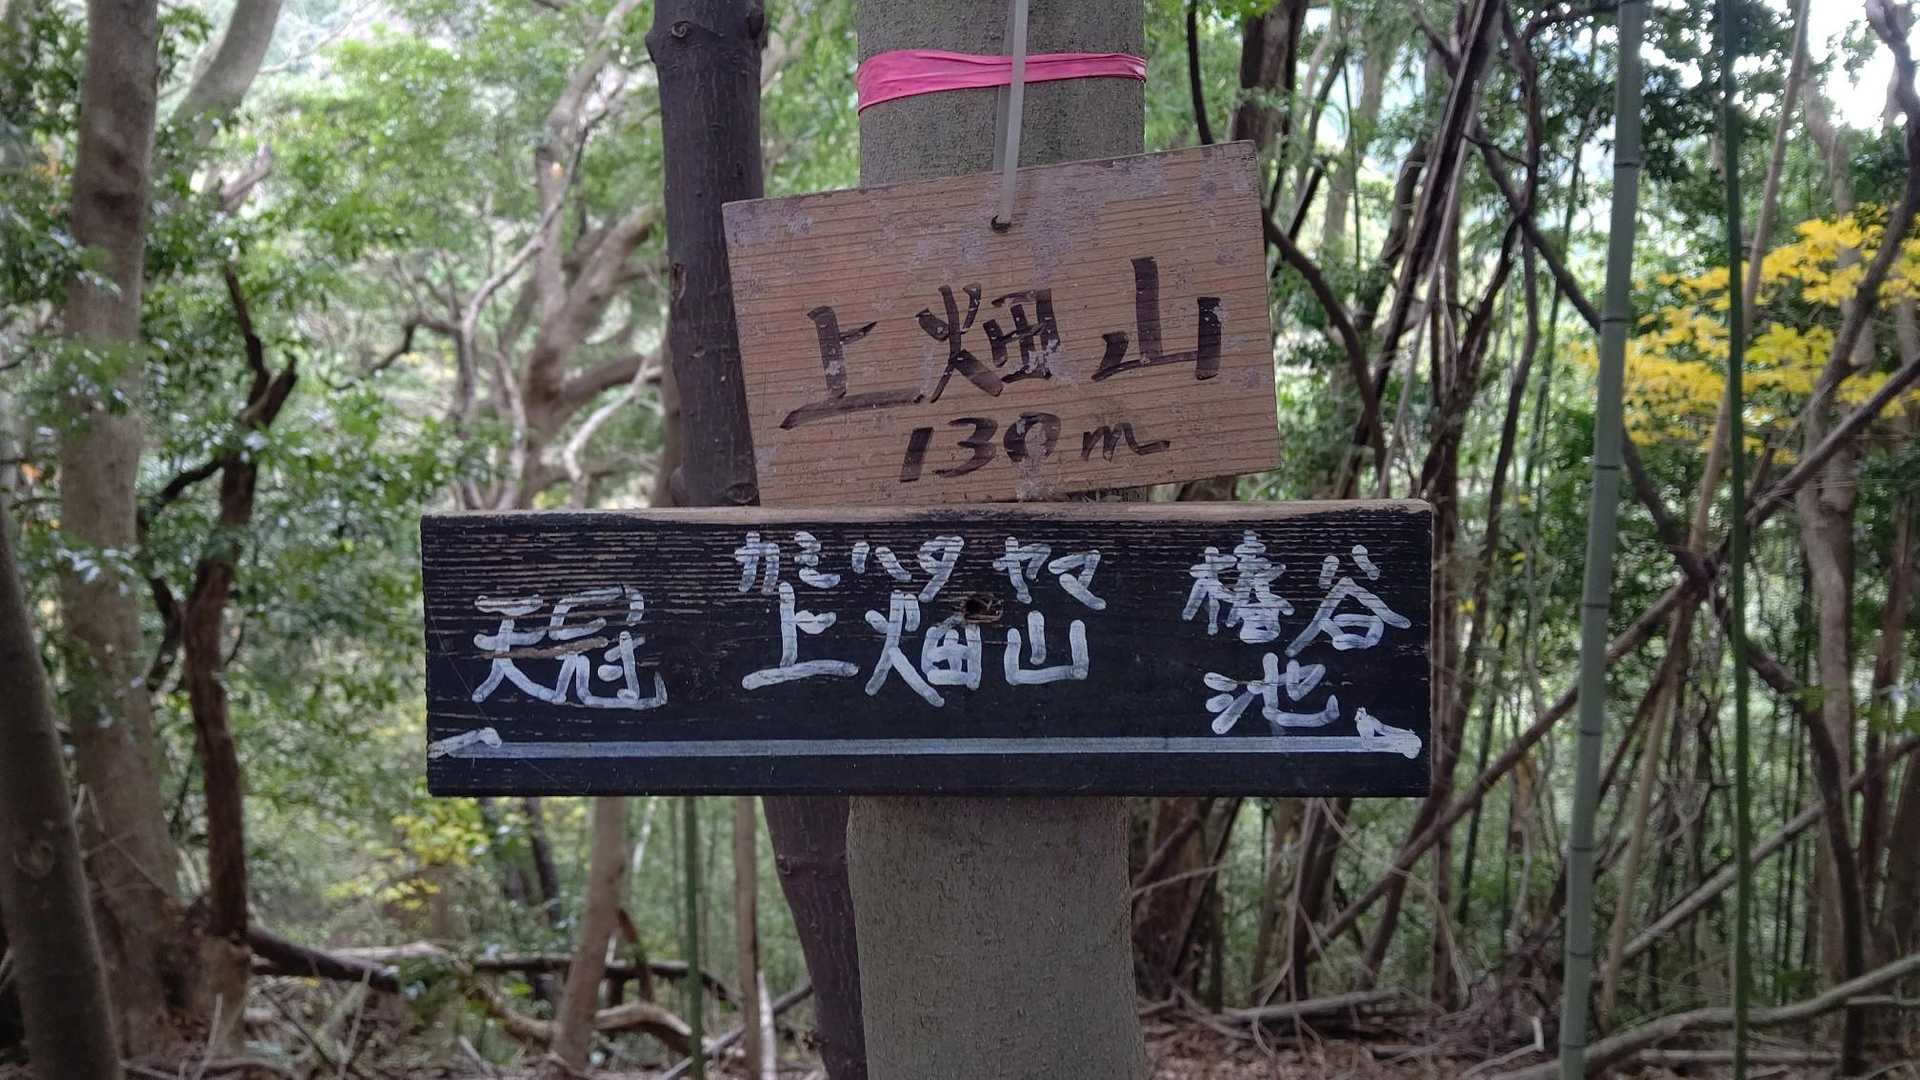 上畑山
130m
カミハタヤマ
天冠 上畑山 椿谷
池